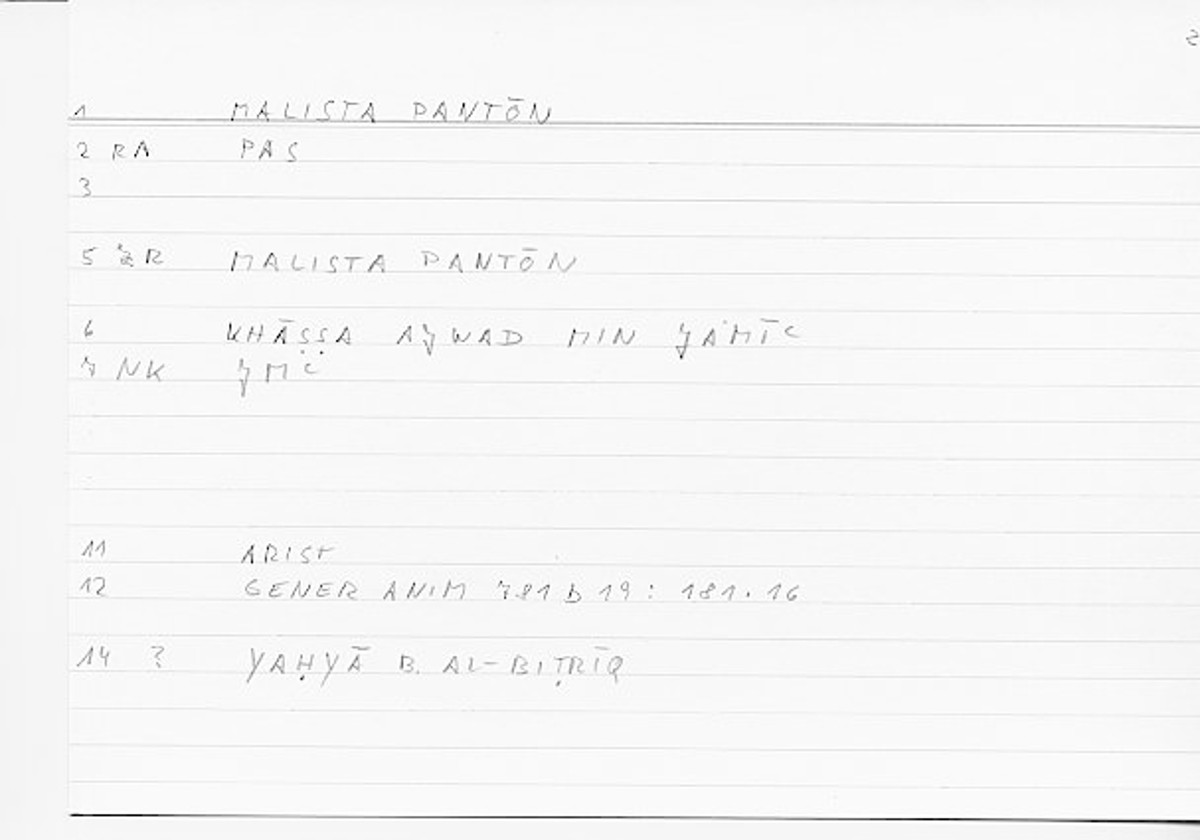 2
1 MALISTA PANTŌN
2 RA PAS
3
5 ZR MALISTA PANTŌN
6 KHĀṢṢA AJWAD MIN JAMĪC
7 NK JMC
11 ARIST
12 GENER ANIM 781 b 19 : 181.16
14 ? YAḤYĀ B. AL-BIṬRĪQ